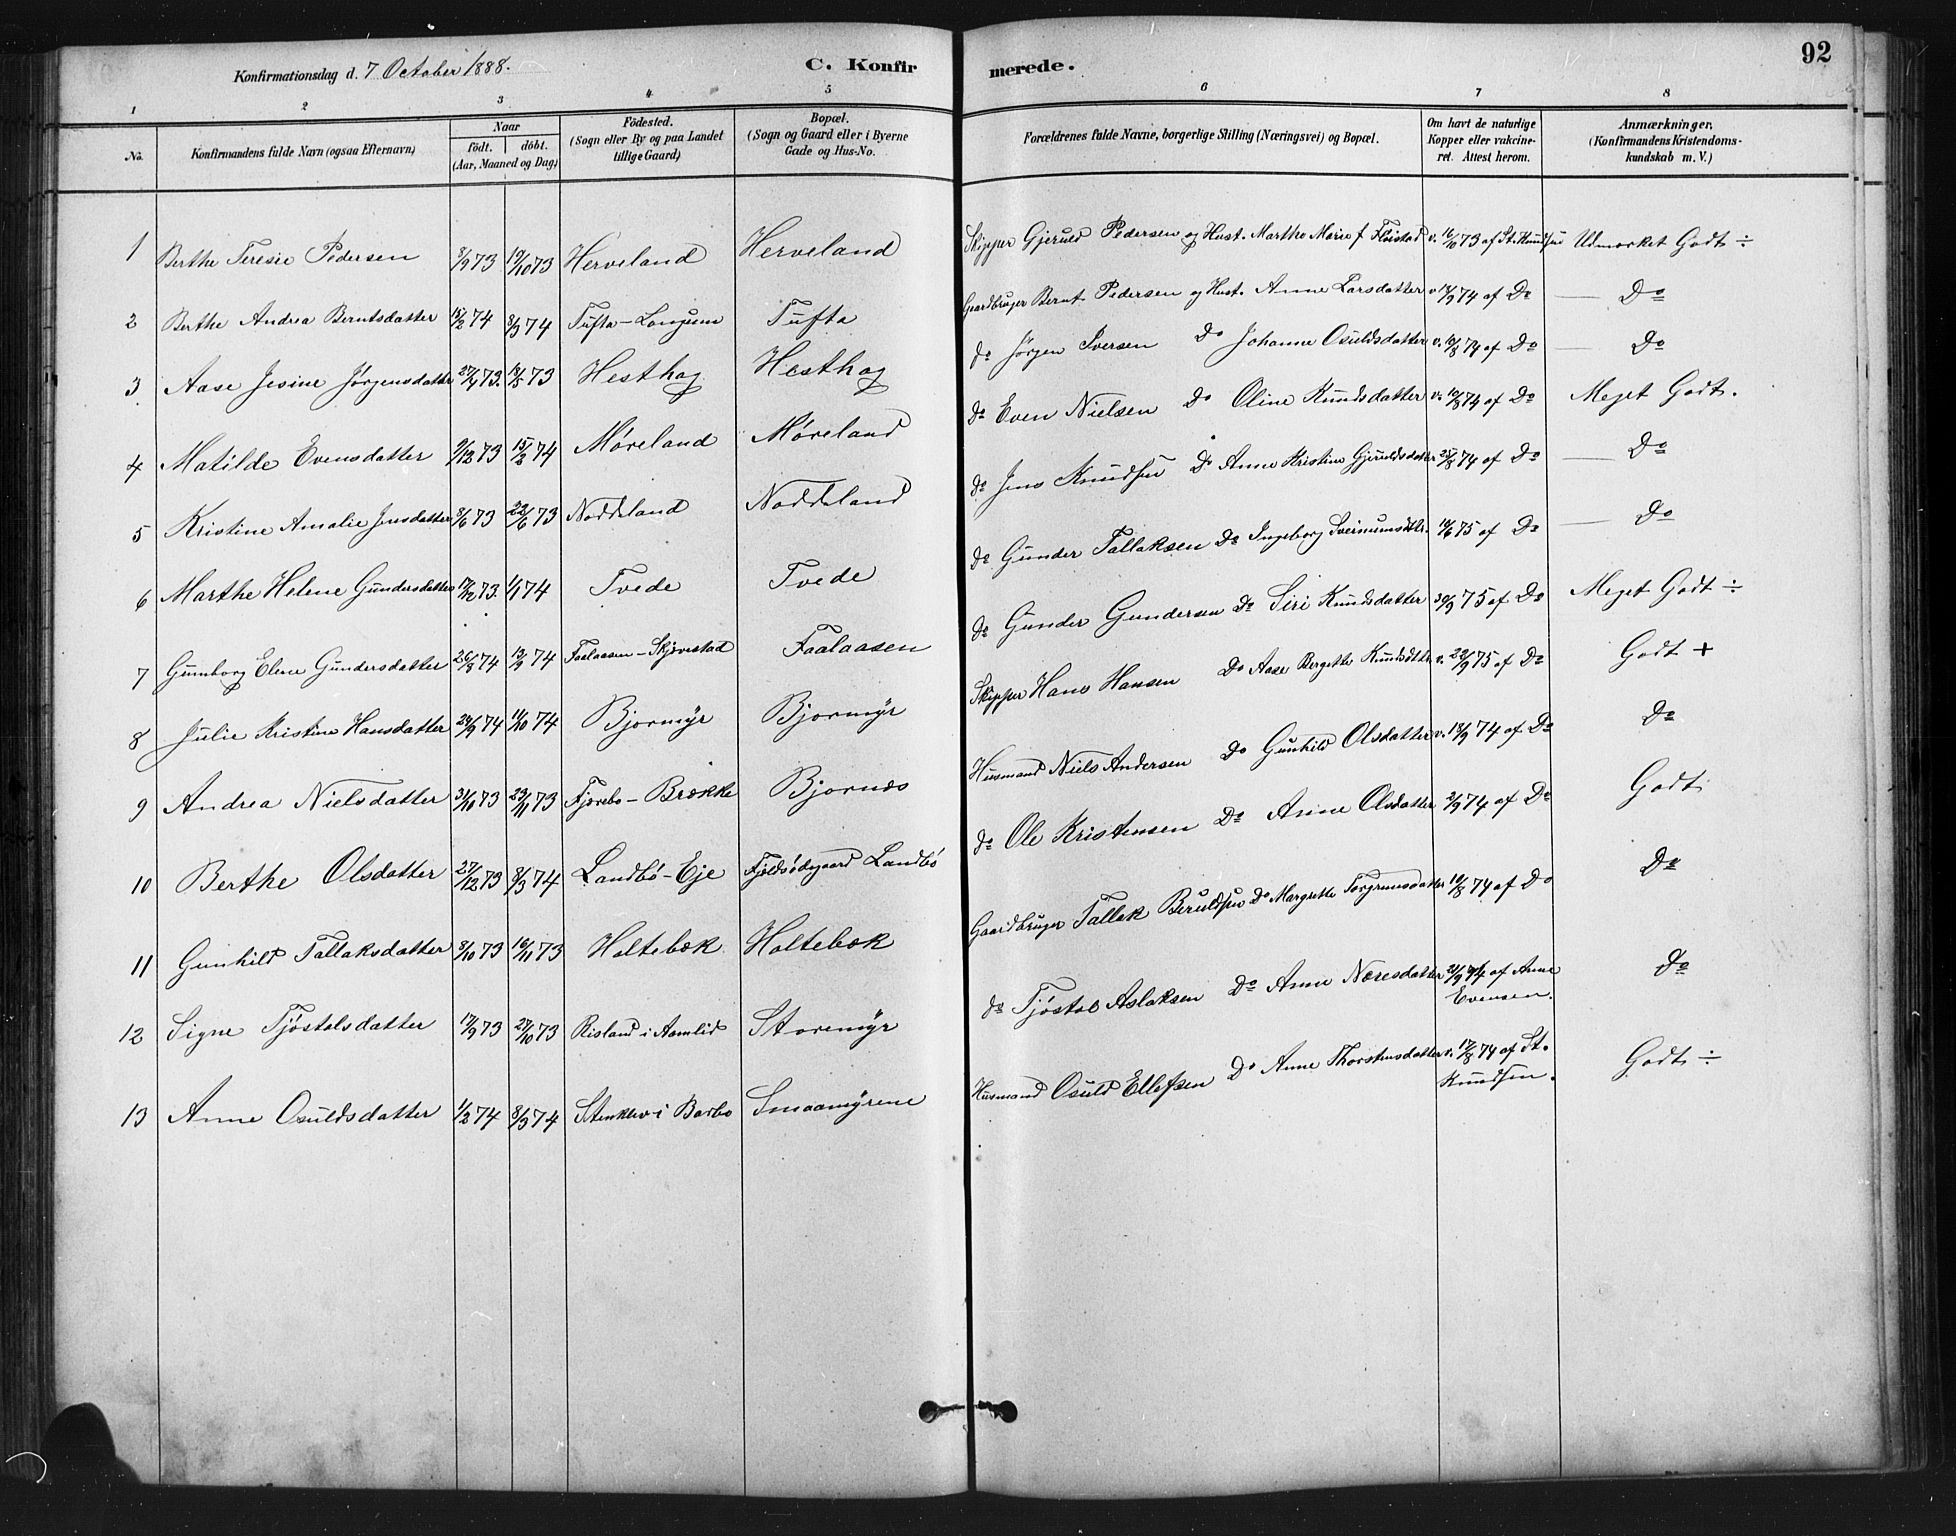 92
Konfirmationsdag d. 7 October 1888. C. Konfirmerede.
1 2 3 4 5 6 7 8
No. Konfirmandens fulde Navn (ogsaa Efternavn) Naar født. døbt. (Aar, Maaned og Dag) Fødested. (Sogn eller By og paa Landet tillige Gaard) Bopæl. (Sogn og Gaard eller i Byerne Gade og Hus-No. Forældrenes fulde Navne, borgerlige Stilling (Næringsvei) og Bopæl. Om havt de naturlige Kopper eller vakcineret. Attest herom. Anmærkninger, (Konfirmandens Kristendomskundskab m. V.)
1 Berthe Teresie Pedersen 8/9 73 19/10 73 Herveland Herveland Skipper Gjeruld Pedersen og Hust. Marthe Marie f Fløistad v. 16/10 73 af St. Knudsen Udmærket Godt ÷
2 Berthe Andrea Berntsdatter 15/2 74 8/3 74 Tufta-Longum Tufta Gaardbruger Bernt Pedersen og Hust. Anne Larsdatter v 14/9 74 af Do — Do
3 Aase Jesine Jørgensdatter 27/4 73. 18/5 73 Hesthag Hesthag do Jørgen Iversen Do Johanne Osuldsdatter v. 10/8 74 af Do — Do
4 Matilde Evensdatter 9/12 73 15/2 74 Møreland Møreland do Even Nielsen Do Oline Knudsdatter v. 10/8 74 af Do Meget Godt.
5 Kristine Amalie Jensdatter 8/6 73 22/6 73 Noddeland Noddeland do Jens Knudsen Do Anne Kristine Gjeruldsdatter 25/8 74 af Do — Do
6 Marthe Helene Gundersdatter 17/12 73. 1/1 74 Tvede Tvede do Gunder Tallaksen Do Ingeborg Sveinumsdtr. 10/6 75 af Do — Do
7 Gunborg Elene Gundersdatter 26/8 74 13/9 74 Faalaasen-Skjævestad Faalaasen do Gunder Gundersen Do Siri Knudsdatter 30/9 75 af Do Meget Godt ÷
8 Julie Kristine Hansdatter 24/9 74 11/10 74 Bjormyr Bjormyr Skipper Hans Hansen Do Aase Bergitte Knudsdtr v. 22/9 75 af Do Godt +
9 Andrea Nielsdatter 31/10 73 23/11 73 Fjærebo-Brække Bjornæs Husmand Niels Andersen Do Gunhild Olsdatter v. 18/9 74 af Do Do
10 Berthe Olsdatter 27/12 73 8/3 74 Landbö-Eje Fjeldsödegaard Landbö do Ole Kristensen Do Anne Olsdatter 2/9 74 af Do Godt
11 Gunhild Tallaksdatter 8/10 73 16/11 73 Holtebæk Holtebæk Gaardbruger Tallak Beruldsen Do Margrethe Torgrimsdatter 10/8 74 af Do Do
12 Signe Tjöstolsdatter 17/9 73 27/10 73 Risland i Aamlid Storemyr do Tjöstol Aslaksen Do Anne Næresdatter 21/9 74 af Anne Evensen. Do
13 Anne Osuldsdatter 1/2 74 8/3 74 Stenklev i Barbo Smaamyrene Husmand Osuld Ellefsen Do Anne Thorstensdatter v. 17/8 74 af St. Knudsen. Godt ÷